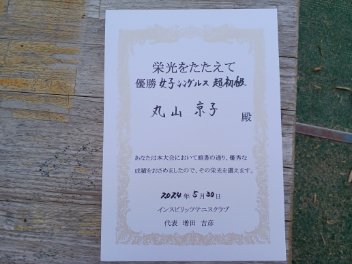 栄光をたたえて
優勝 女子シングルス 超初級
丸山 京子 殿
あなたは本大会において頭書の通り、優秀な
成績をおさめましたので、その栄光を讃えます。
2024年5月30日
インスピリッツテニスクラブ
代表 増田 吉彦